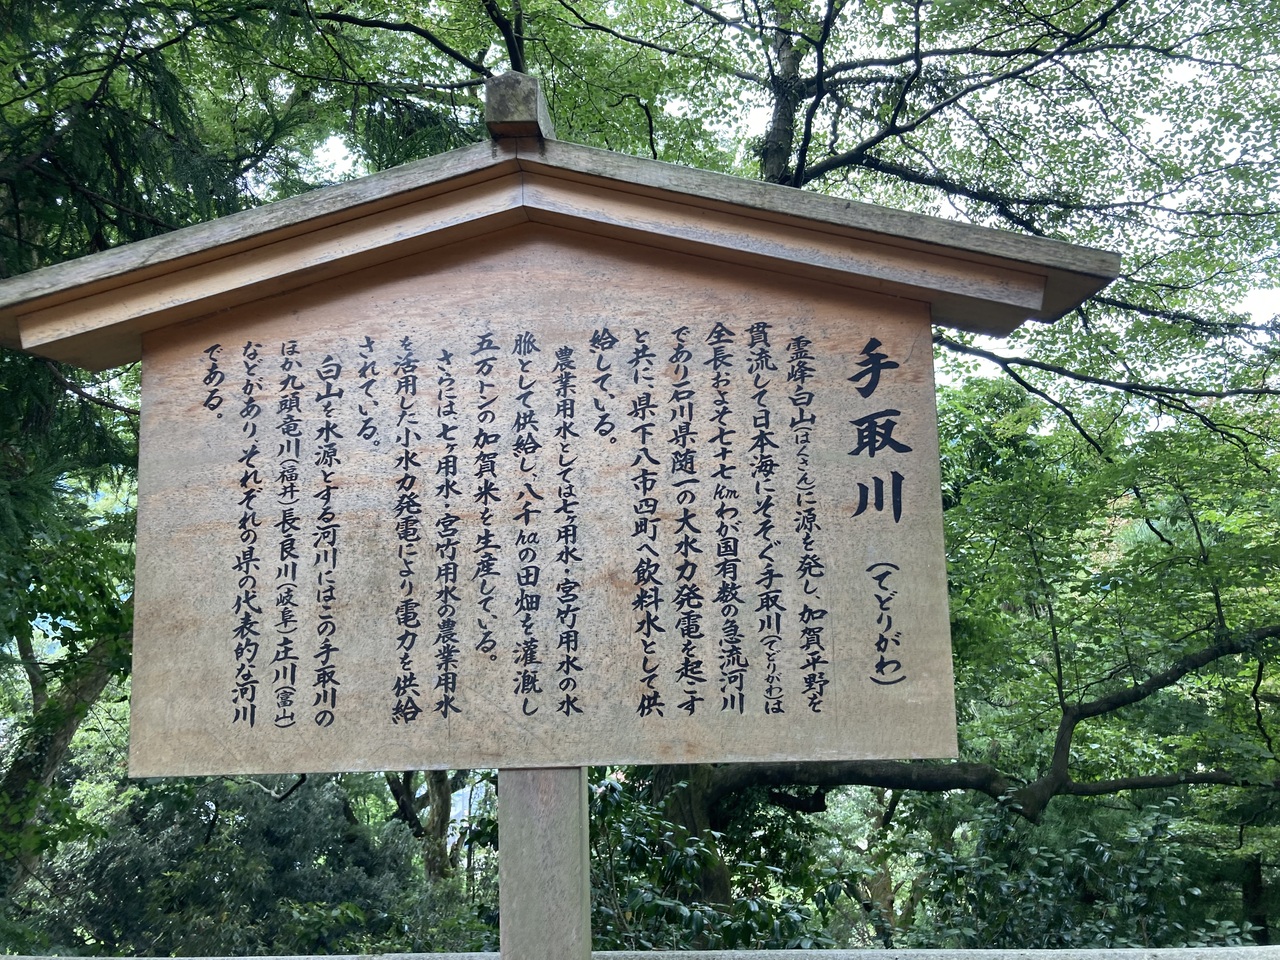 手取川 (てどりがわ)
霊峰白山(はくさん)に源を発し、加賀平野を
貫流して日本海にそそぐ手取川(てどりがわ)は
全長およそ七十七kmわが国有数の急流河川
であり石川県随一の大水力発電を起こす
と共に県下八市四町へ飲料水として供
給している。
農業用水としては七ヶ用水・宮竹用水の水
脈として供給し、八千haの田畑を灌漑し
五万トンの加賀米を生産している。
さらには七ヶ用水・宮竹用水の農業用水
を活用した小水力発電により電力を供給
されている。
白山を水源とする河川にはこの手取川の
ほか九頭竜川(福井)長良川(岐阜)庄川(富山)
などがあり、それぞれの県の代表的な河川
である。